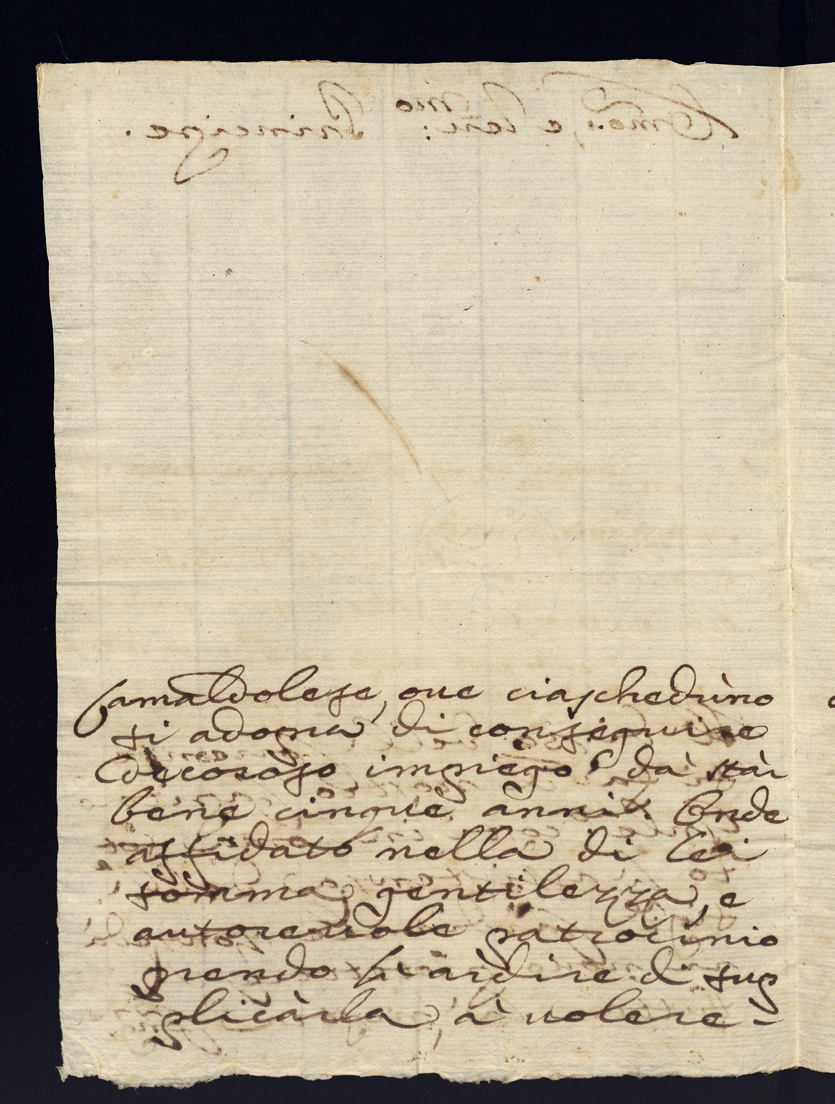 Camaldolese, ove ciascheduno
si adopra di conseguire
decoroso impiego da star
bene cinque anni. Onde
affidato nella di Lei
somma gentilezza, e
autorevole patrocinio
prendo l'ardire di sup
plicarla, à volere-